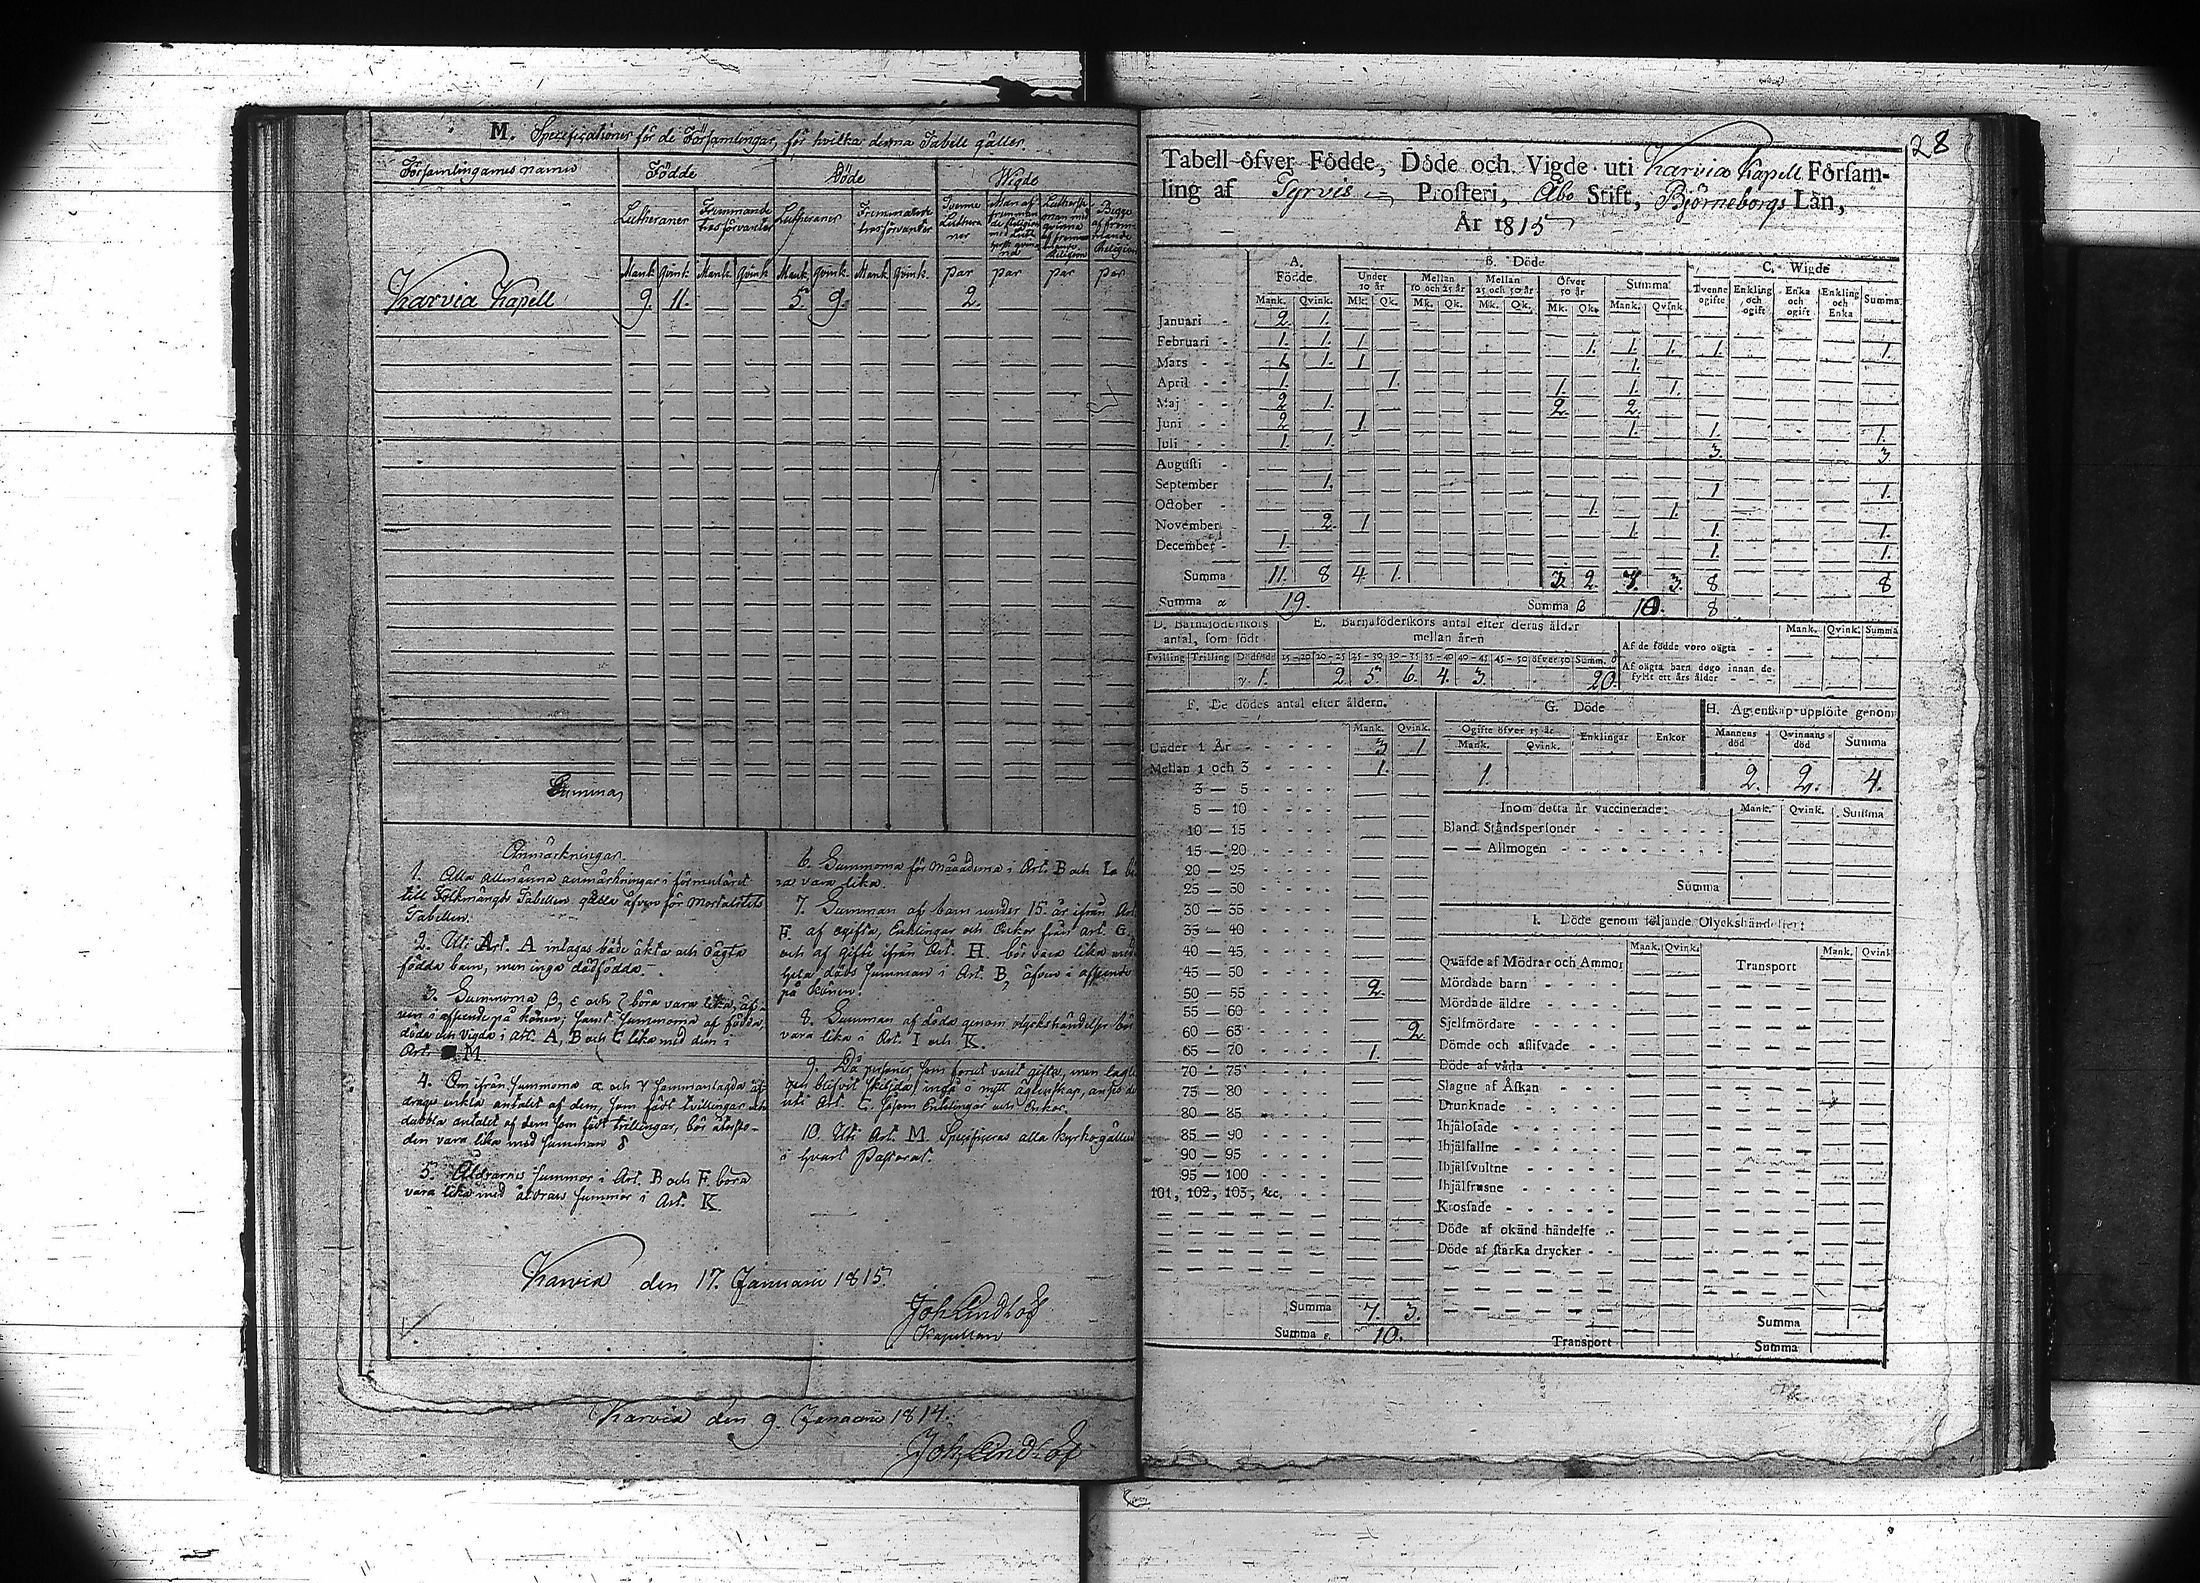 M. Specificationer för de Församlingar, för hvilka denna Tabell gäller.
Församlingarnes namn Födde Döde Wigde
Lutheraner Främmande trosförvanter Lutheraner Främmande trosförvanter Tvenne Lutheraner
Mank. Qvink. Mank. Qvink. Mank. Qvink. Mank. Qvink. par par par par
Karvia Kapell 9. 11. 5. 9. 2.
Summa
Anmärkningar.
1. Alla allmänna anmärkningar i formuläret
till Folkmängds Tabellen gälla äfven för Mortalitets
Tabellen.
2. Uti Art. A intagas både äkta och oägta
födda barn, men inga dödfödda.
3. Summorna β, ε och ζ böra vara lika, äf-
ven i afseende på könen; samt summorna af födda,
döda och vigda i Art. A, B och C lika med dem i
Art. M
4. Om ifrån summorna α och γ sammanlagda af-
drages enkla antalet af dem, som födt tvillingar och
dubbla antalet af dem som födt trillingar, bör återsto-
den vara lika med summan δ
5. Åldrarnes summor i Art. B och F böra
vara lika med åldrars summor i Art. K
6. Summorna för månaderna i Art. B och L bö-
ra vara lika.
7. Summan af barn under 15 år ifrån Art.
F. af ogifta, Enklingar och Enkor från Art. G.
och af gifte ifrån Art. H. bör vara lika med
hela döds summan i Art. B, äfven i afseende
på könen.
8. Summan af döda genom olyckshändelser bör
vara lika i Art. I och K.
9. Då personer som förut varit gifta, men lagli-
gen blifvit skiljda, ingå i nytt ägtenskap, anses de
uti Art. C. såsom Enklingar och Enkor.
10. Uti Art. M. Specificeras alla kyrkogällen
i hvart Pastorat.
Karvia den 17. Januarii 1815.
Joh. Lindlöf
Kapellan
Karvia den 9. Januarii 1814.
Joh. Lindlöf
28
Tabell öfver Födde, Döde och Vigde uti Karvia Kapell Församling
ling af Tyrvis Prosteri, Åbo Stift, Björneborgs Län,
År 1815
A. Födde B. Döde C. Wigde
Under 10 år Mellan 10 och 25 år Mellan 25 och 50 år Öfver 50 år Summa Tvenne ogifte Enkling och ogift Enka och ogift Enkling och Enka Summa
Mank. Qvink. Mk. Qk. Mk. Qk. Mk. Qk. Mk. Qk. Mank. Qvink
Januari 2. 1.
Februari 1. 1. 1 1. 1. 1. 1. 1.
Mars 1. 1. 1 1.
April 1. 1. 1. 1. 1.
Maj 2 1. 2. 2.
Juni 2 1 1. 1. 1.
Juli 1. 1. 3. 3.
Augusti
September 1. 1 1.
October 1. 1.
November 2. 1 1. 1. 1.
December 1. 1. 1.
Summa 11. 8 4. 1. 3. 2. 7. 3. 8 8
Summa α 19. Summa β 10. 8
D. Barnaföderskors antal, som födt
E. Barnaföderskors antal efter deras ålder mellan åren
Mank. Qvink. Summa
Tvilling Trilling Dödfödd 15-20 20-25 25-30 30-35 35-40 40-45 45-50 öfver 50 Summ. δ
γ. 1. 2. 5 6. 4. 3. 20.
Af de födde voro oägta
Af oägta barn dogo innan de
fyllt ett års ålder
F. De dödes antal efter åldern.
Mank. Qvink.
Under 1 År 3 1
Mellan 1 och 3 1.
3 — 5
5 — 10
10 — 15
15 — 20
20 — 25
25 — 30
30 — 35
35 — 40
40 — 45
45 — 50
50 — 55 2.
55 — 60
60 — 65 2.
65 — 70 1.
70 — 75
75 — 80
80 — 85
85 — 90
90 — 95
95 — 100
101, 102, 103, &c.
Summa 7. 3.
Summa ε. 10.
G. Döde
Ogifte öfver 15 år Enklingar Enkor
Mank. Qvink.
1.
H. Ägtenskap upplöste genom
Mannens död Qvinnans död Summa
2. 2. 4.
Inom detta år vaccinerade: Mank. Qvink. Summa
Bland Ståndspersoner
— — Allmogen
Summa
I. Döde genom följande Olyckshändelser:
Mank. Qvink. Mank. Qvink
Qväfde af Mödrar och Ammor Transport
Mördade barn
Mördade äldre
Sjelfmördare
Dömde och aflifvade
Döde af våda
Slagne af Åskan
Drunknade
Ihjälosade
Ihjälfallne
Ihjälsvultne
Ihjälfrusne
Krossade
Döde af okänd händelse
Döde af starka drycker
Summa
Transport Summa